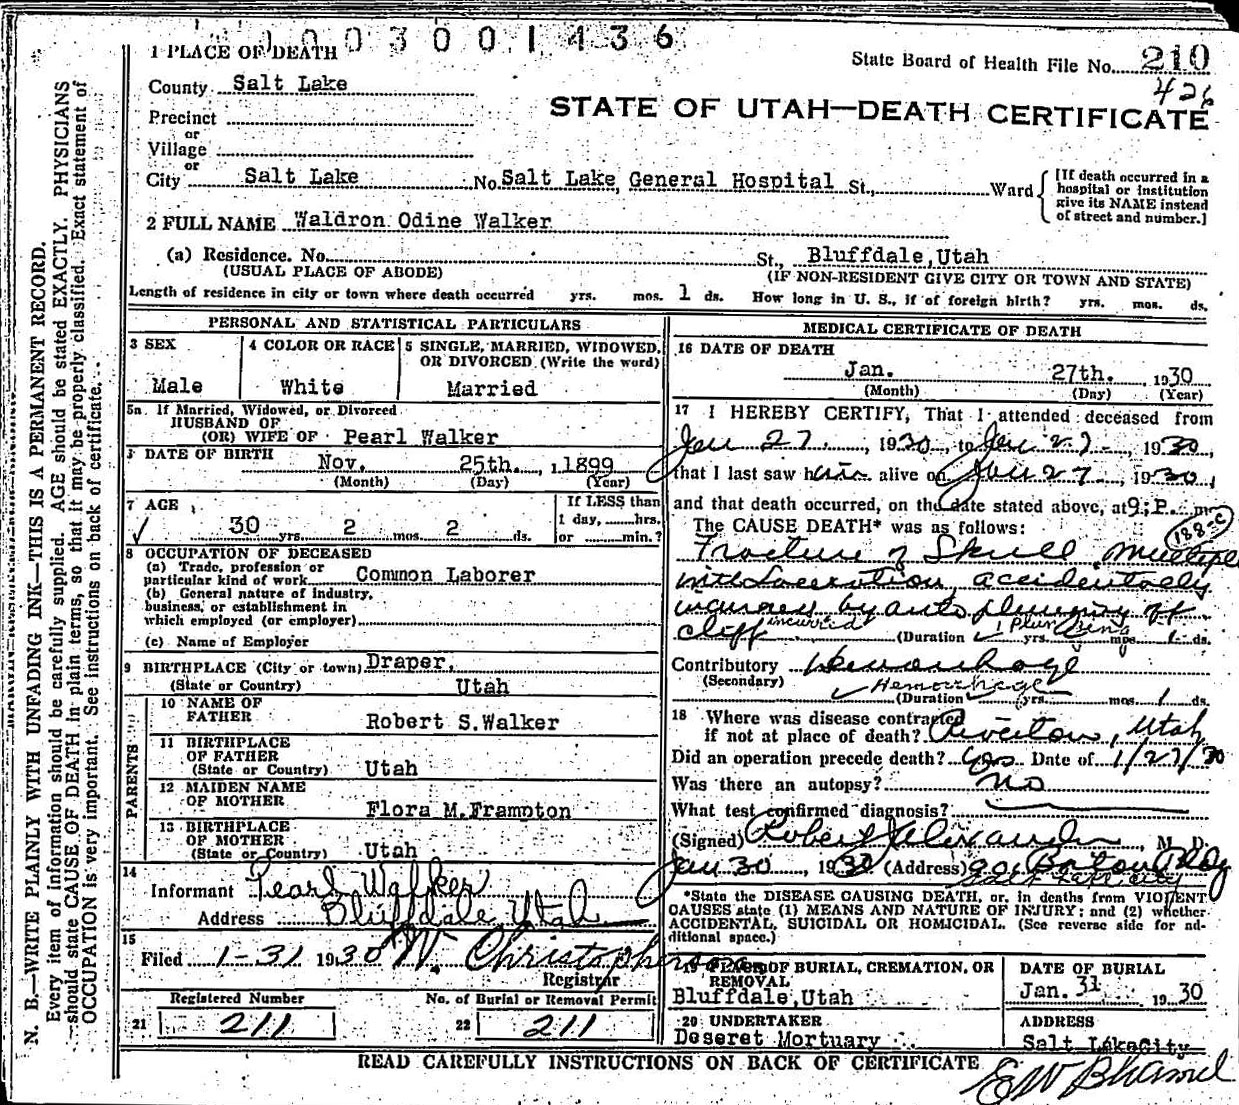 1003001436
1 PLACE OF DEATH
State Board of Health File No. 210
426
County Salt Lake
STATE OF UTAH—DEATH CERTIFICATE
Precinct
or
Village
or
City Salt Lake No. Salt Lake General Hospital St., Ward
[If death occurred in a hospital or institution give its NAME instead of street and number.]
2 FULL NAME Waldron Odine Walker
(a) Residence. No. St., Bluffdale, Utah
(USUAL PLACE OF ABODE) (IF NON-RESIDENT GIVE CITY OR TOWN AND STATE)
Length of residence in city or town where death occurred yrs. mos. 1 ds. How long in U. S., if of foreign birth? yrs. mos. ds.
PERSONAL AND STATISTICAL PARTICULARS
3 SEX
Male
4 COLOR OR RACE
White
5 SINGLE, MARRIED, WIDOWED,
OR DIVORCED (Write the word)
Married
5a If Married, Widowed, or Divorced
HUSBAND OF
(OR) WIFE OF Pearl Walker
DATE OF BIRTH
Nov. 25th. 1899
(Month) (Day) (Year)
7 AGE
30 yrs. 2 mos. 2 ds.
If LESS than
1 day, hrs.
or min.?
8 OCCUPATION OF DECEASED
(a) Trade, profession or
particular kind of work Common Laborer
(b) General nature of industry,
business, or establishment in
which employed (or employer)
(c) Name of Employer
9 BIRTHPLACE (City or town) Draper,
(State or Country) Utah
PARENTS
10 NAME OF
FATHER Robert S. Walker
11 BIRTHPLACE
OF FATHER
(State or Country) Utah
12 MAIDEN NAME
OF MOTHER Flora M. Frampton
13 BIRTHPLACE
OF MOTHER
(State or Country) Utah
14
Informant Pearl Walker
Address Bluffdale Utah
15
Filed 1-31 1930 W. Christopherson
Registrar
Registered Number
21 211
No. of Burial or Removal Permit
22 211
MEDICAL CERTIFICATE OF DEATH
16 DATE OF DEATH
Jan. 27th. 1930
(Month) (Day) (Year)
17 I HEREBY CERTIFY, That I attended deceased from
Jan 27, 1930, to Jan 27, 1930
that I last saw him alive on Jan 27, 1930,
and that death occurred, on the date stated above, at 9; P. m.
The CAUSE DEATH* was as follows:
188-c
Fracture of Skull Multiple
with Laceration, accidentally
incurred by auto plunging off
cliff incurred (Duration Plunging yrs. mos. 1 ds.
Contributory Hemorrhage
(Secondary) Hemorrhage
(Duration yrs. mos. 1 ds.
18 Where was disease contracted
if not at place of death? Riverton, Utah
Did an operation precede death? Yes Date of 1/27/30
Was there an autopsy? no
What test confirmed diagnosis?
(Signed) Robert Alexander, M. D.
Jan 30 1930 (Address) Boston Bldg
Salt Lake City
*State the DISEASE CAUSING DEATH, or, in deaths from VIOLENT
CAUSES state (1) MEANS AND NATURE OF INJURY; and (2) whether
ACCIDENTAL, SUICIDAL OR HOMICIDAL. (See reverse side for additional space.)
19 PLACE OF BURIAL, CREMATION, OR
REMOVAL
Bluffdale, Utah
DATE OF BURIAL
Jan. 31 1930
20 UNDERTAKER
Deseret Mortuary
ADDRESS
Salt Lake City
READ CAREFULLY INSTRUCTIONS ON BACK OF CERTIFICATE
N. B.—WRITE PLAINLY WITH UNFADING INK—THIS IS A PERMANENT RECORD.
Every item of information should be carefully supplied. AGE should be stated EXACTLY. PHYSICIANS
should state CAUSE OF DEATH in plain terms, so that it may be properly classified. Exact statement of
OCCUPATION is very important. See instructions on back of certificate.